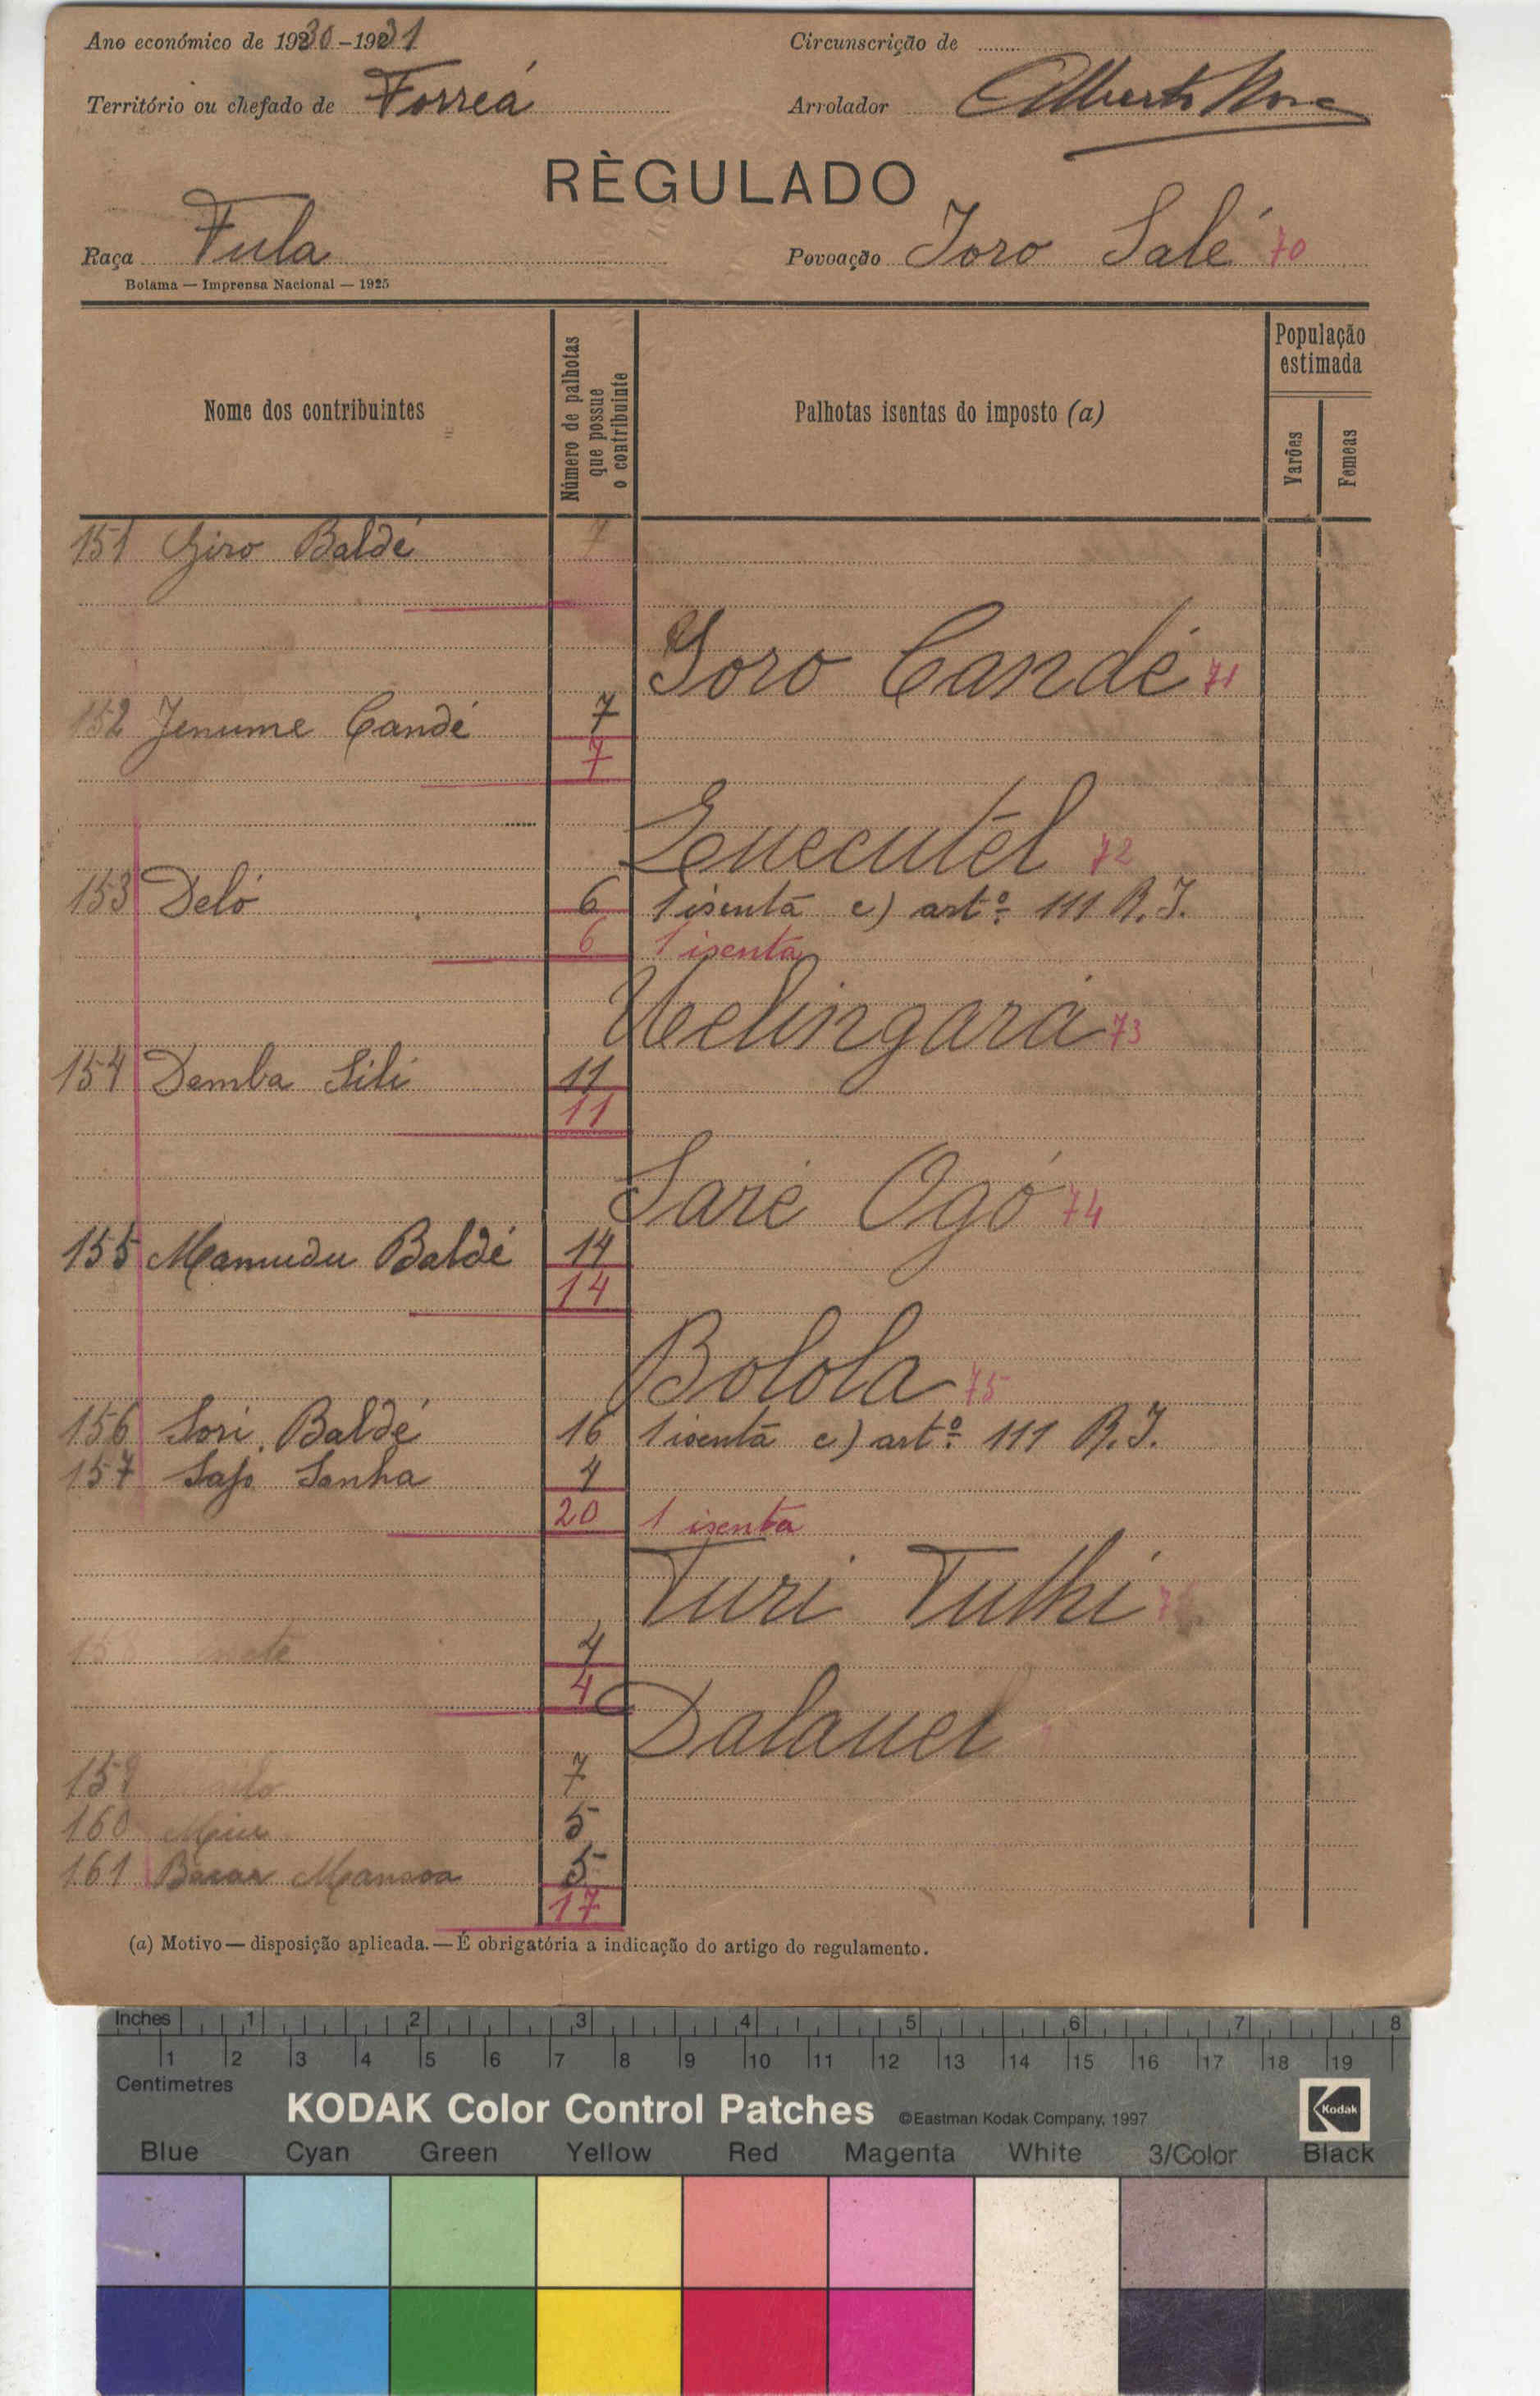 Ano económico de 1930-1931
Circunscrição de
Território ou chefado de Forreá
Arrolador Alberto
RÈGULADO
Raça Fula
Povoação Joro Salé 70
Bolama — Imprensa Nacional — 1925
Nome dos contribuintes
Número de palhotas que possue o contribuinte
Palhotas isentas do imposto (a)
População estimada
Varões
Femeas
151 Baldé
Candé 71
152 Jenume Candé 7
7
72
153 Deló 6 1 isenta c) artº 111 R. I.
6 1 isenta
Uelingará 73
154 Demba Sili 11
11
Saré Ogó 74
155 Mamudu Baldé 14
14
Bolola 75
156 Sori Baldé 16 1 isenta c) artº 111 R. I.
157 Sanha 4
20 1 isenta
Turi Tuthi
4
4
Dalauel
7
160 5
161 Bacar Mansoa 5
17
(a) Motivo — disposição aplicada. — É obrigatória a indicação do artigo do regulamento.
Inches 1 2 3 4 5 6 7 8
1 2 3 4 5 6 7 8 9 10 11 12 13 14 15 16 17 18 19
Centimetres
KODAK Color Control Patches ©Eastman Kodak Company, 1997 Kodak
Blue Cyan Green Yellow Red Magenta White 3/Color Black